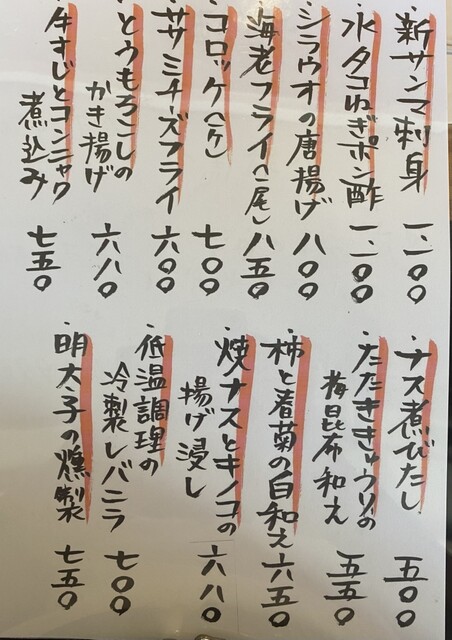 ・新サンマ刺身 一、一〇〇
・水タコねぎポン酢 一、一〇〇
・シラウオの唐揚げ 八〇〇
・海老フライ(一尾) 八五〇
・コロッケ(一ケ) 七〇〇
・ササミチーズフライ 六〇〇
・とうもろこしの
かき揚げ 六八〇
・牛すじとコンニャク
煮込み 七五〇
・ナス煮びたし 五〇〇
・たたききゅうりの
梅昆布和え 五五〇
・柿と春菊の白和え 六五〇
・焼ナスとキノコの
揚げ浸し 六八〇
・低温調理の
冷製レバニラ 七〇〇
・明太子の燻製 七五〇